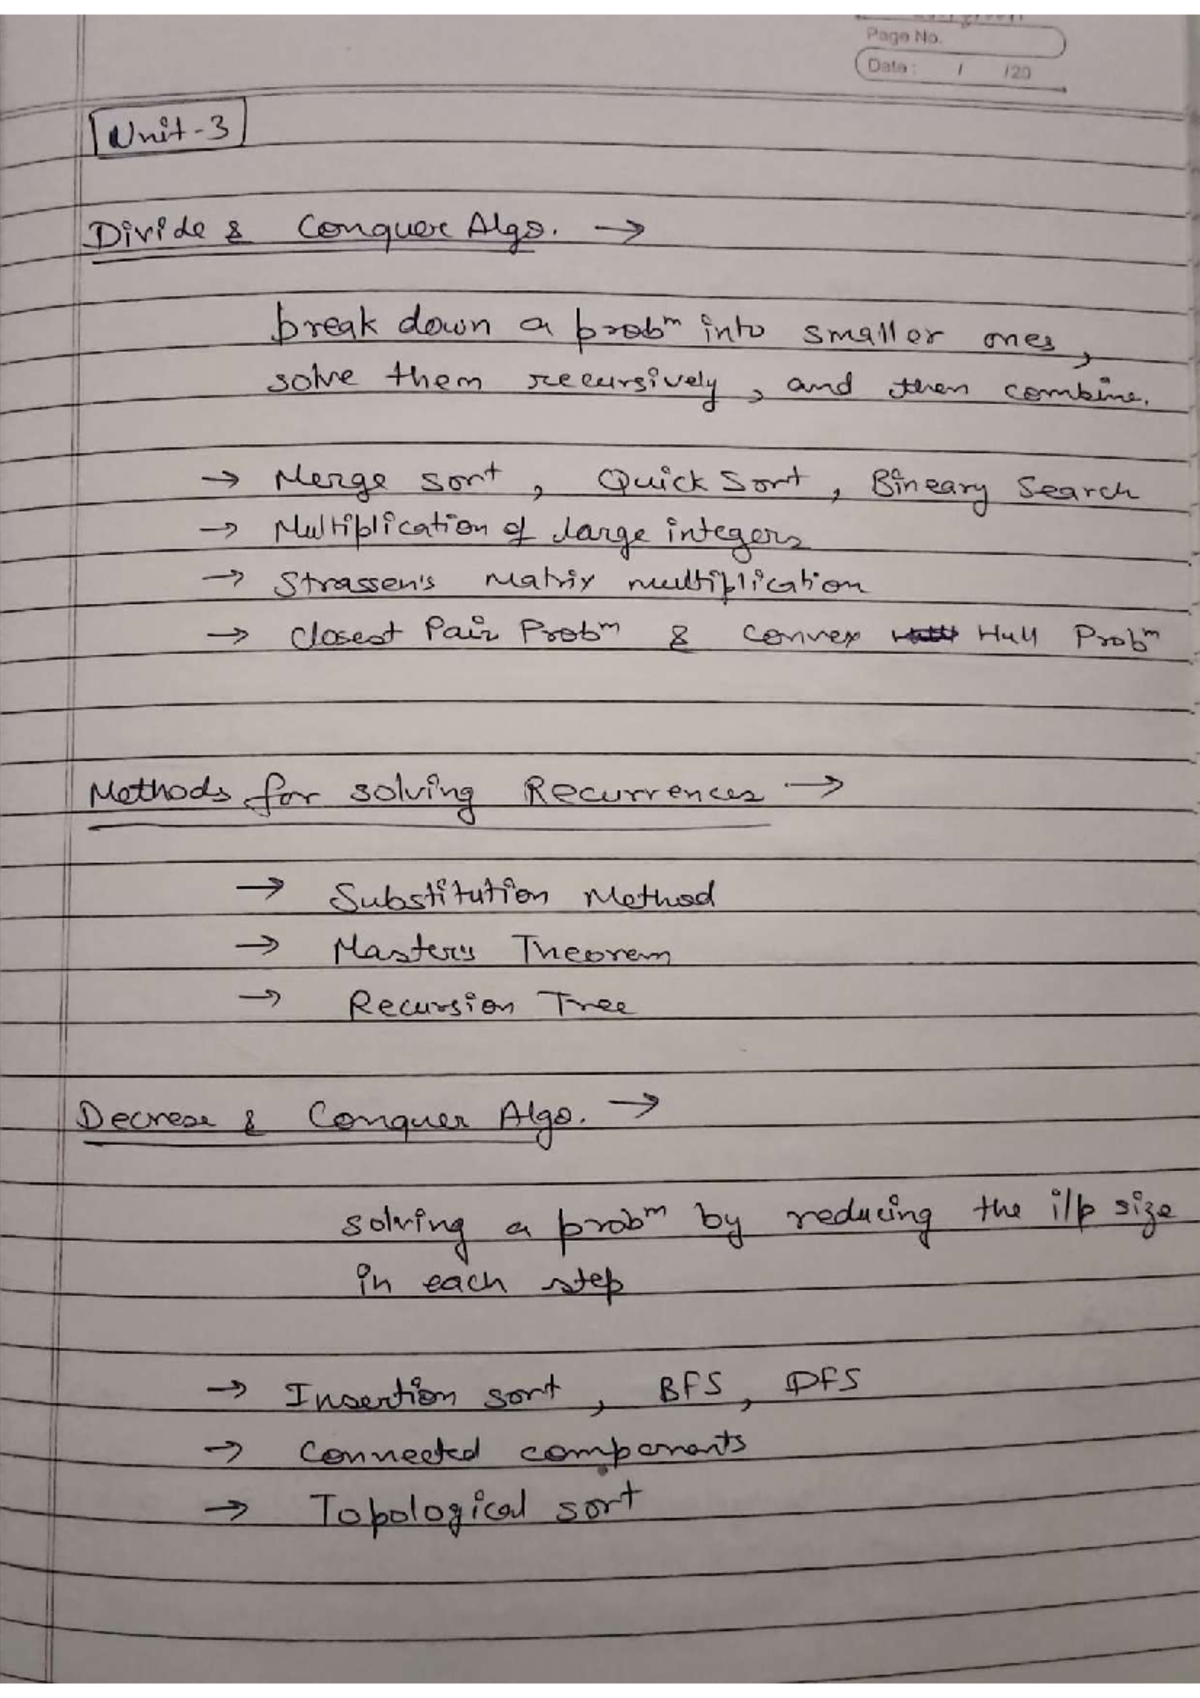 Page No.
Date : / /20
Unit-3
Divide & Conquer Algo. →
break down a probᵐ into smaller ones,
solve them recursively, and then combine.
→ Merge sort, Quick Sort, Bineary Search
→ Multiplication of large integers
→ Strassen's Matrix multiplication
→ Closest Pair Probᵐ & Convex Hull Probᵐ
Methods for solving Recurrences →
→ Substitution Method
→ Master's Theorem
→ Recursion Tree
Decrese & Conquer Algo. →
solving a probᵐ by reducing the i/p size
in each step
→ Insertion sort, BFS, DFS
→ Connected components
→ Topological sort